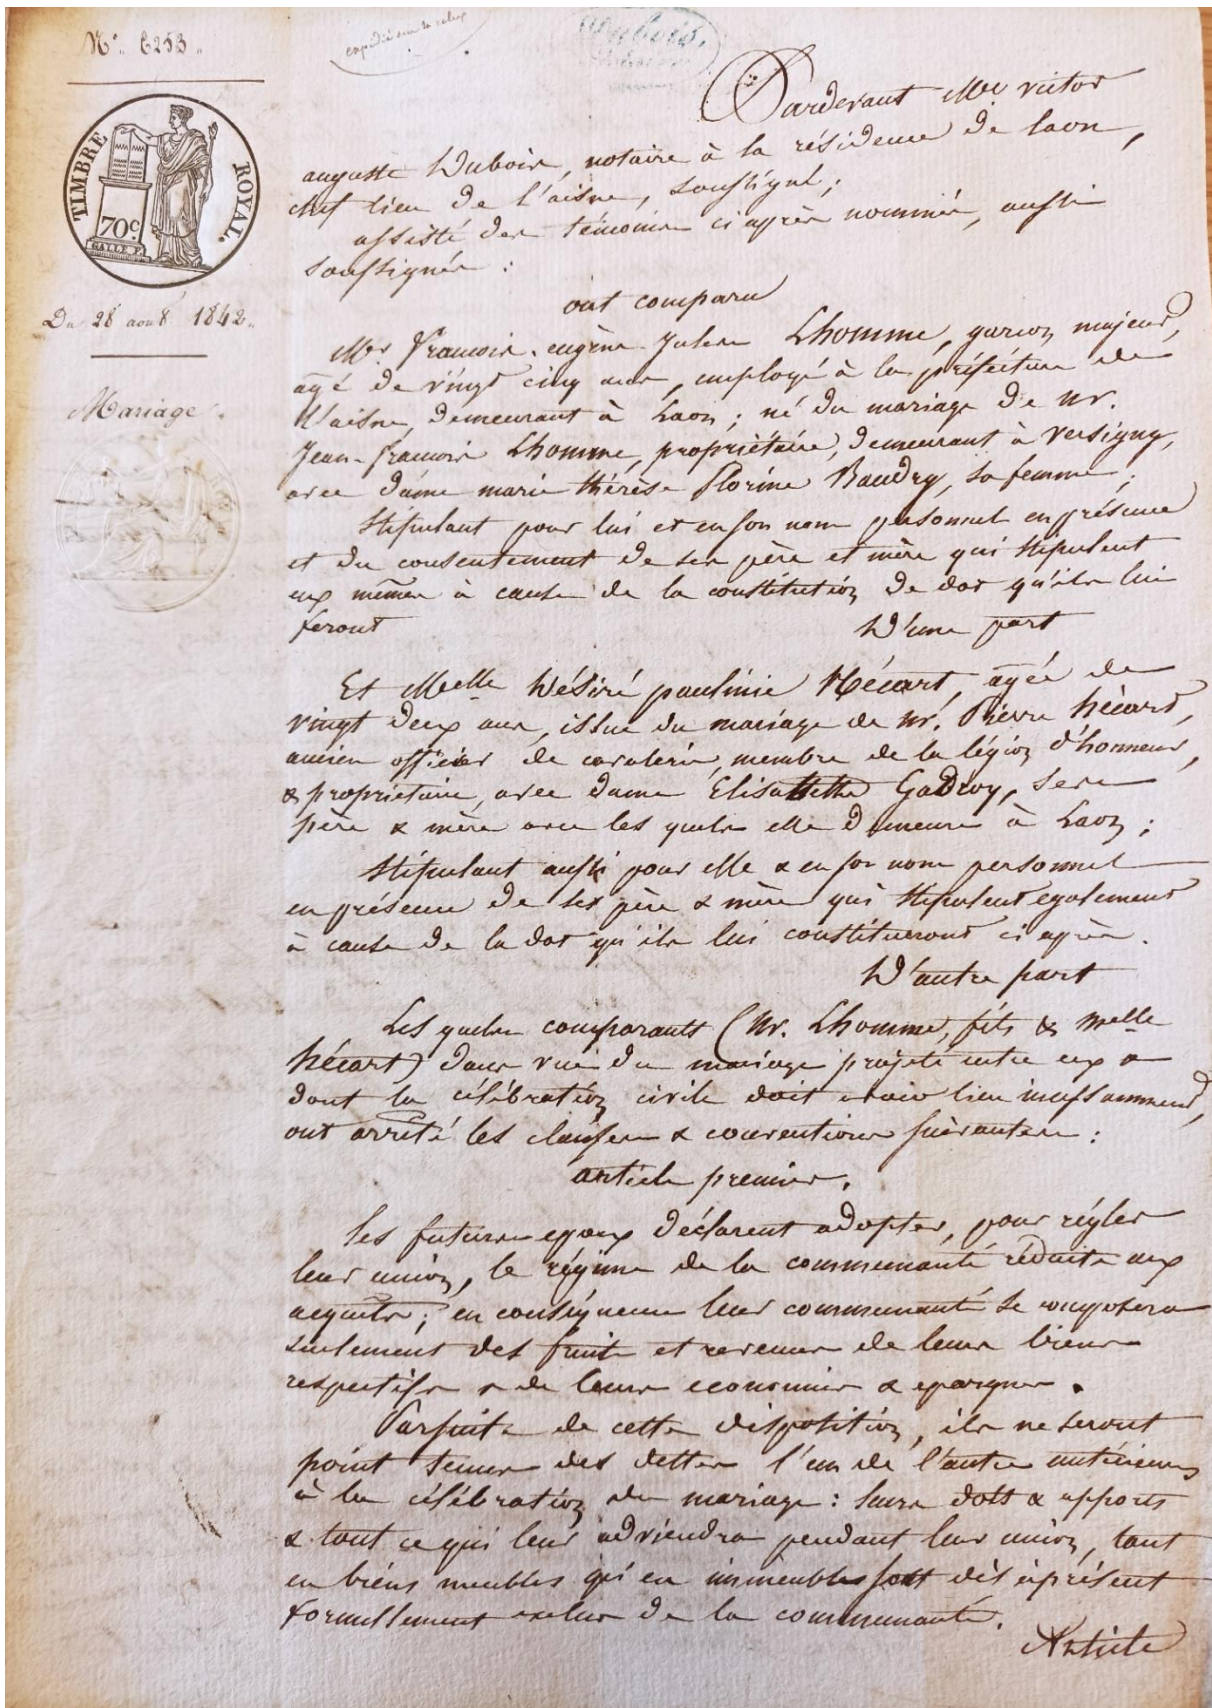 N° 6253
Dubois,
TIMBRE ROYAL.
70c.
Du 28 août 1842.
Mariage.
Pardevant Me victor
auguste Dubois, notaire à la résidence de laon,
chef lieu de l'aisne, soussigné;
assisté des témoins ci après nommés, aussi
soussignés :
ont comparu
Mr. francois eugène Jules Lhomme, garcon majeur,
agé de vingt cinq ans, employé à la préfecture de
l'aisne, demeurant à Laon; né du mariage de mr.
Jean-francois Lhomme, propriétaire, demeurant à Versigny,
avec dame marie thérèse florine Baudry, sa femme;
Stipulant pour lui et en son nom personnel en présence
et du consentement de ses père et mère qui stipulent
eux mêmes à cause de la constitution de dot qu'ils lui
feront
D'une part
Et Melle Désiré paulinie Hécart, agée de
vingt deux ans, issue du mariage de mr. Pierre hécart,
ancien officier de cavalerie, membre de la légion d'honneur,
& propriétaire, avec dame Elisabethe Gadroy, ses
père & mère avec les quels elle demeure à Laon;
Stipulant aussi pour elle & en son nom personnel
en présence de ses père & mère qui stipulent egalement
à cause de la dot qu'ils lui constitueront ci après.
D'autre part
Les quels comparants (Mr. Lhomme, fils & melle
hécart) dans vue du mariage projeté entre eux &
dont la célébration civile doit avoir lieu incessamment,
ont arrêté les clauses & conventions suivantes :
article premier.
les futurs epoux déclarent adopter, pour régler
leur union, le régime de la communauté réduite aux
acquêts; en conséquence leur communauté se composera
seulement des fruits et revenus de leurs biens
respectifs & de leurs economies & epargnes.
Par suite de cette disposition, ils ne seront
point tenus des dettes l'un de l'autre antérieures
à la célébration du mariage : leurs dots & apports
& tout ce qui leur adviendra pendant leur union, tant
en biens meubles qu'en immeubles sont dès à présent
formellement exclus de la communauté.
Article